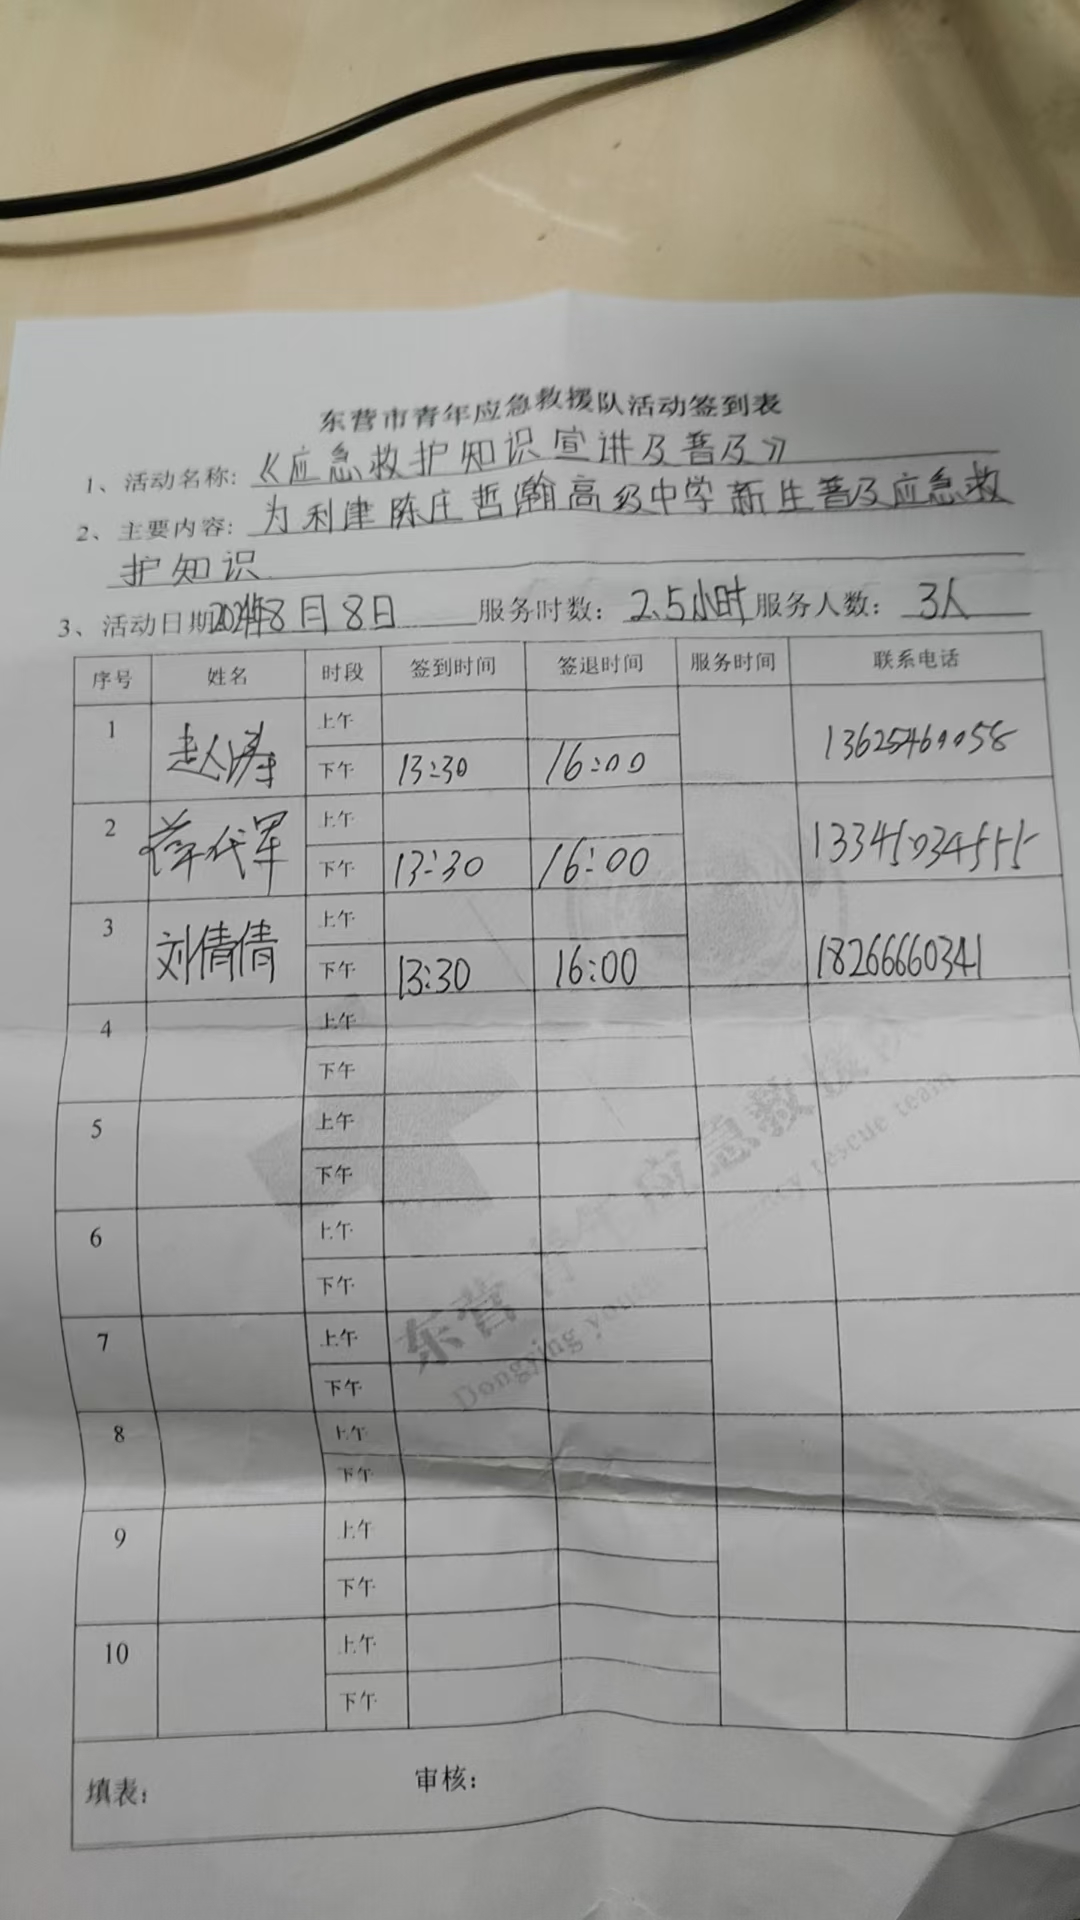 东营市青年应急救援队活动签到表
1、活动名称:《应急救护知识宣讲及普及》
2、主要内容:为利津陈庄哲瀚高级中学新生普及应急救
护知识
3、活动日期 8月8日 服务时数: 2.5小时 服务人数: 3人
序号 姓名 时段 签到时间 签退时间 服务时间 联系电话
1 赵涛 上午
下午 13:30 16:00 13625460058
2 薛代军 上午
下午 13:30 16:00 13345034555
3 刘倩倩 上午
下午 13:30 16:00 18266660341
4 上午
下午
5 上午
下午
6 上午
下午
7 上午
下午
8 上午
下午
9 上午
下午
10 上午
下午
填表: 审核:
东营青年应急救援队
Dongying youth emergency rescue team